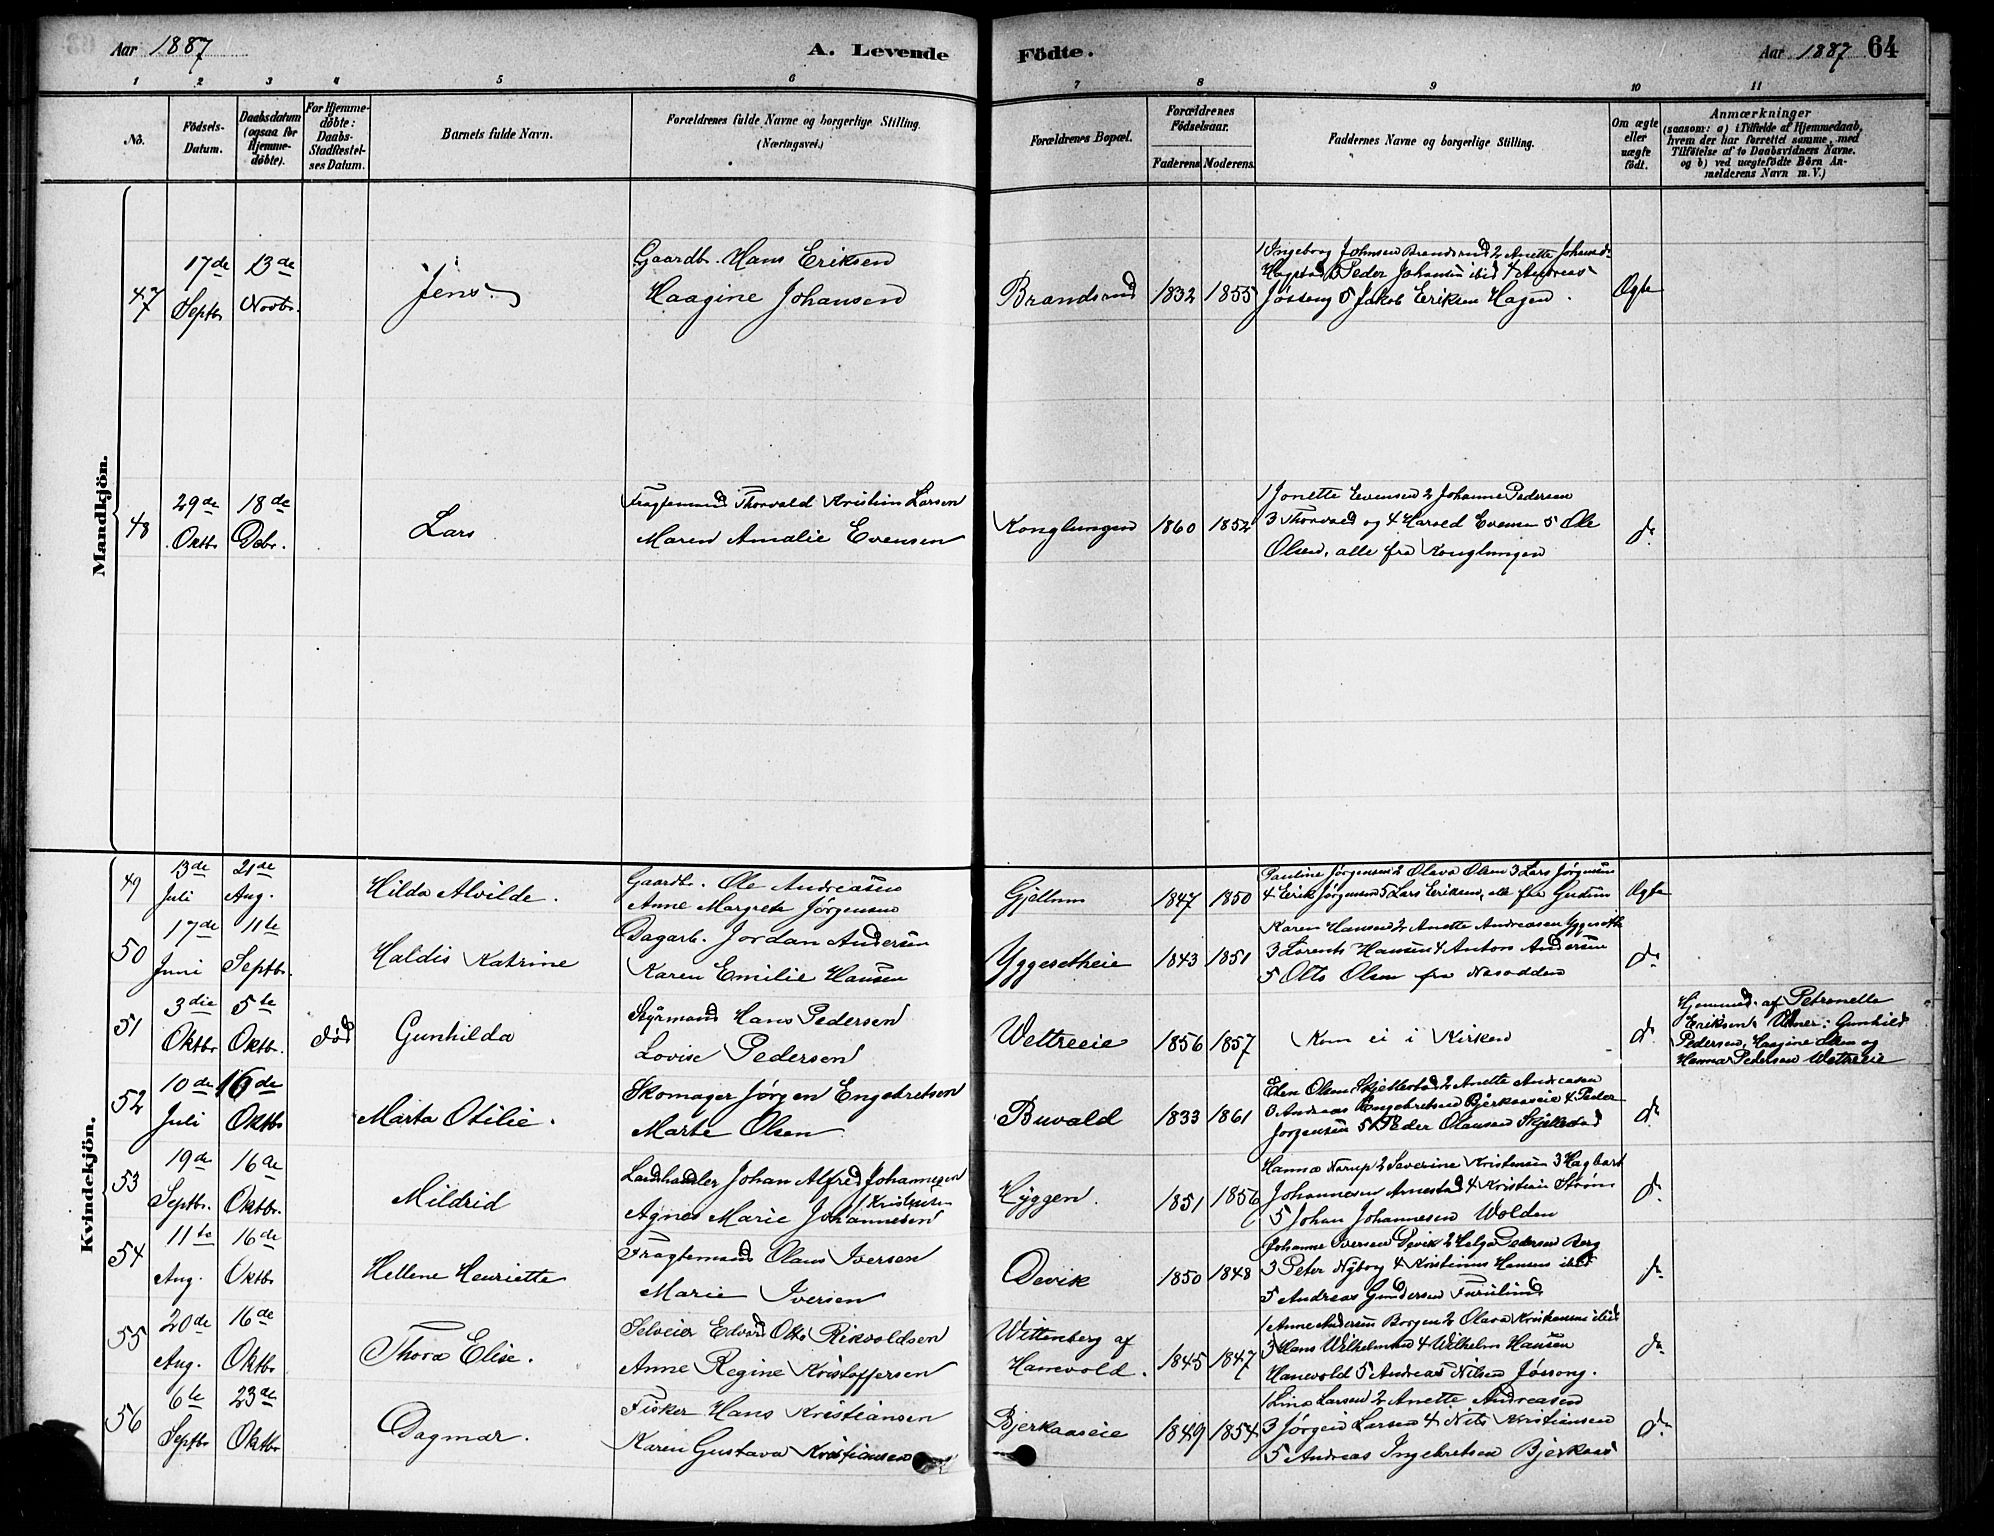 Aar 1887 A. Levende Födte. Aar 1887 64
1 2 3 4 5 6 7 8 9 10 11
Nö. Födsels-Datum. Daabsdatum (ogsaa for Hjemme-döbte). For Hjemme-döbte: Daabs-Stadfestel-ses Datum. Barnets fulde Navn. Forældrenes fulde Navne og borgerlige Stilling. (Næringsvei.) Forældrenes Bopæl. Forældrenes Födselsaar. Faderens Moderens. Faddernes Navne og borgerlige Stilling. Om ægte eller uægte födt. Anmærkninger (saasom: a) i Tilfælde af Hjemmedaab, hvem der har forrettet samme, med Tilföielse af to Daabsvidners Navne, og b) ved uægtefödte Börn An-melderens Navn m. V.)
Mandkjön.
17de 13de Gaardbr. Hans Eriksen 1 Ingeborg Johnsen Brandsrud 2 Anette Johansd.
47 Septbr Novbr. Jens Haagine Johansen Brandsrud 1832 1855 Hagstad 3 Peder Johansen ibid 4 Andreas Ægte
Jøssong 5 Jakob Eriksen Hagen.
29de 18de Fragtemand Thorvald Kristian Larsen 1 Jonette Evensen 2 Johanne Pedersen
48 Oktbr. Debr. Lars Maren Amalie Evensen Konglungen 1860 1852 3 Thorvald og 4 Harald Evensen 5 Ole do
Olsen, alle fra Konglungen
Kvindekjön.
49 13de 21de Gaardbr. Ole Andreasen Pauline Jørgensen 2 Olava Olsen 3 Lars Jørgensen
Juli Aug. Hilda Alvilde. Anne Margrete Jørgensen Gjellum 1847 1850 4 Erik Jørgensen 5 Lars Eriksen, alle fra Ægte
50 17de 11te Dagarb. Jordan Andersen Karen Hansen 2 Anette Andreasen Yggeseth
Juni Septbr. Haldis Katrine Karen Emilie Hansen Yggesetheie 1843 1851 3 Lorents Hansen 4 Anton Andersen do
5 Otto Olsen fra Nesodden
51 3die 5te Styrmand Hans Pedersen Hjemmed. af Petronelle
Oktbr Oktbr. død Gunhilda Lovise Pedersen Wettreeie 1856 1857 Kom ei i Kirken do Eriksen. Vidner: Gunhild
Pedersen, Haagine Olsen og
Hanna Pedersen Wettreeie
52 10de 16de Skomager Jørgen Engebretsen Olsen Skjellestad 2 Anette Andreasen
Juli Oktbr Marta Otilie. Marte Olsen Buvald 1833 1861 3 Andreas Engebretsen Bjerkaaseie 4 Peder do
Jørgensen 5 Peder Olausen Skjellestad
53 19de 16de Landhandler Johan Alfred Johannesen Hanna Narup 2 Severine Kristensen 3 Hagbart
Septbr. Oktbr. Mildrid Agnes Marie Johannesen Kristensen Hyggen. 1851 1856 Johannesen Arnestad 4 Kristian Strøm do
5 Johan Johannesen Wolden
54 11te 16de Fragtemand Olaus Iversen Johanne Iversen Devik 2 Helga Pedersen Berg
Aug. Oktbr Hellene Henriette Marie Iversen Devik 1850 1848 3 Peter Nyborg 4 Kristinus Hansen ibid do
5 Andreas Gundersen Furulund
55 20de 16de Selveier Edvard Otto Rikvoldsen Wittenberg af 1 Anne Andersen Borgen 2 Olava Kristensen ibid
Aug. Oktbr Thora Elise. Anne Regine Kristoffersen Hanevold. 1845 1847 3 Hans Wilhelmsen 4 Wilhelm Hansen do
Hanevold 5 Andreas Nilsen Jøssong.
56 6te 23de Fisker Hans Kristiansen 1 Lina Larsen 2 Anette Andreasen
Septbr Oktbr Dagmar. Karen Gustava Kristiansen Bjerkaaseie 1849 1854 3 Jørgen Larsen 4 Nels Kristiansen do
5 Andreas Ingebretsen Bjerkaas